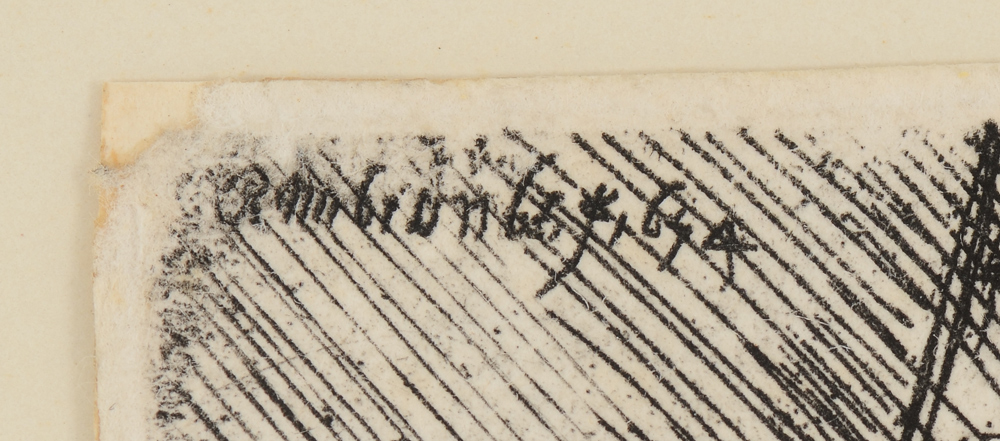 Rembrandt. f. 1654